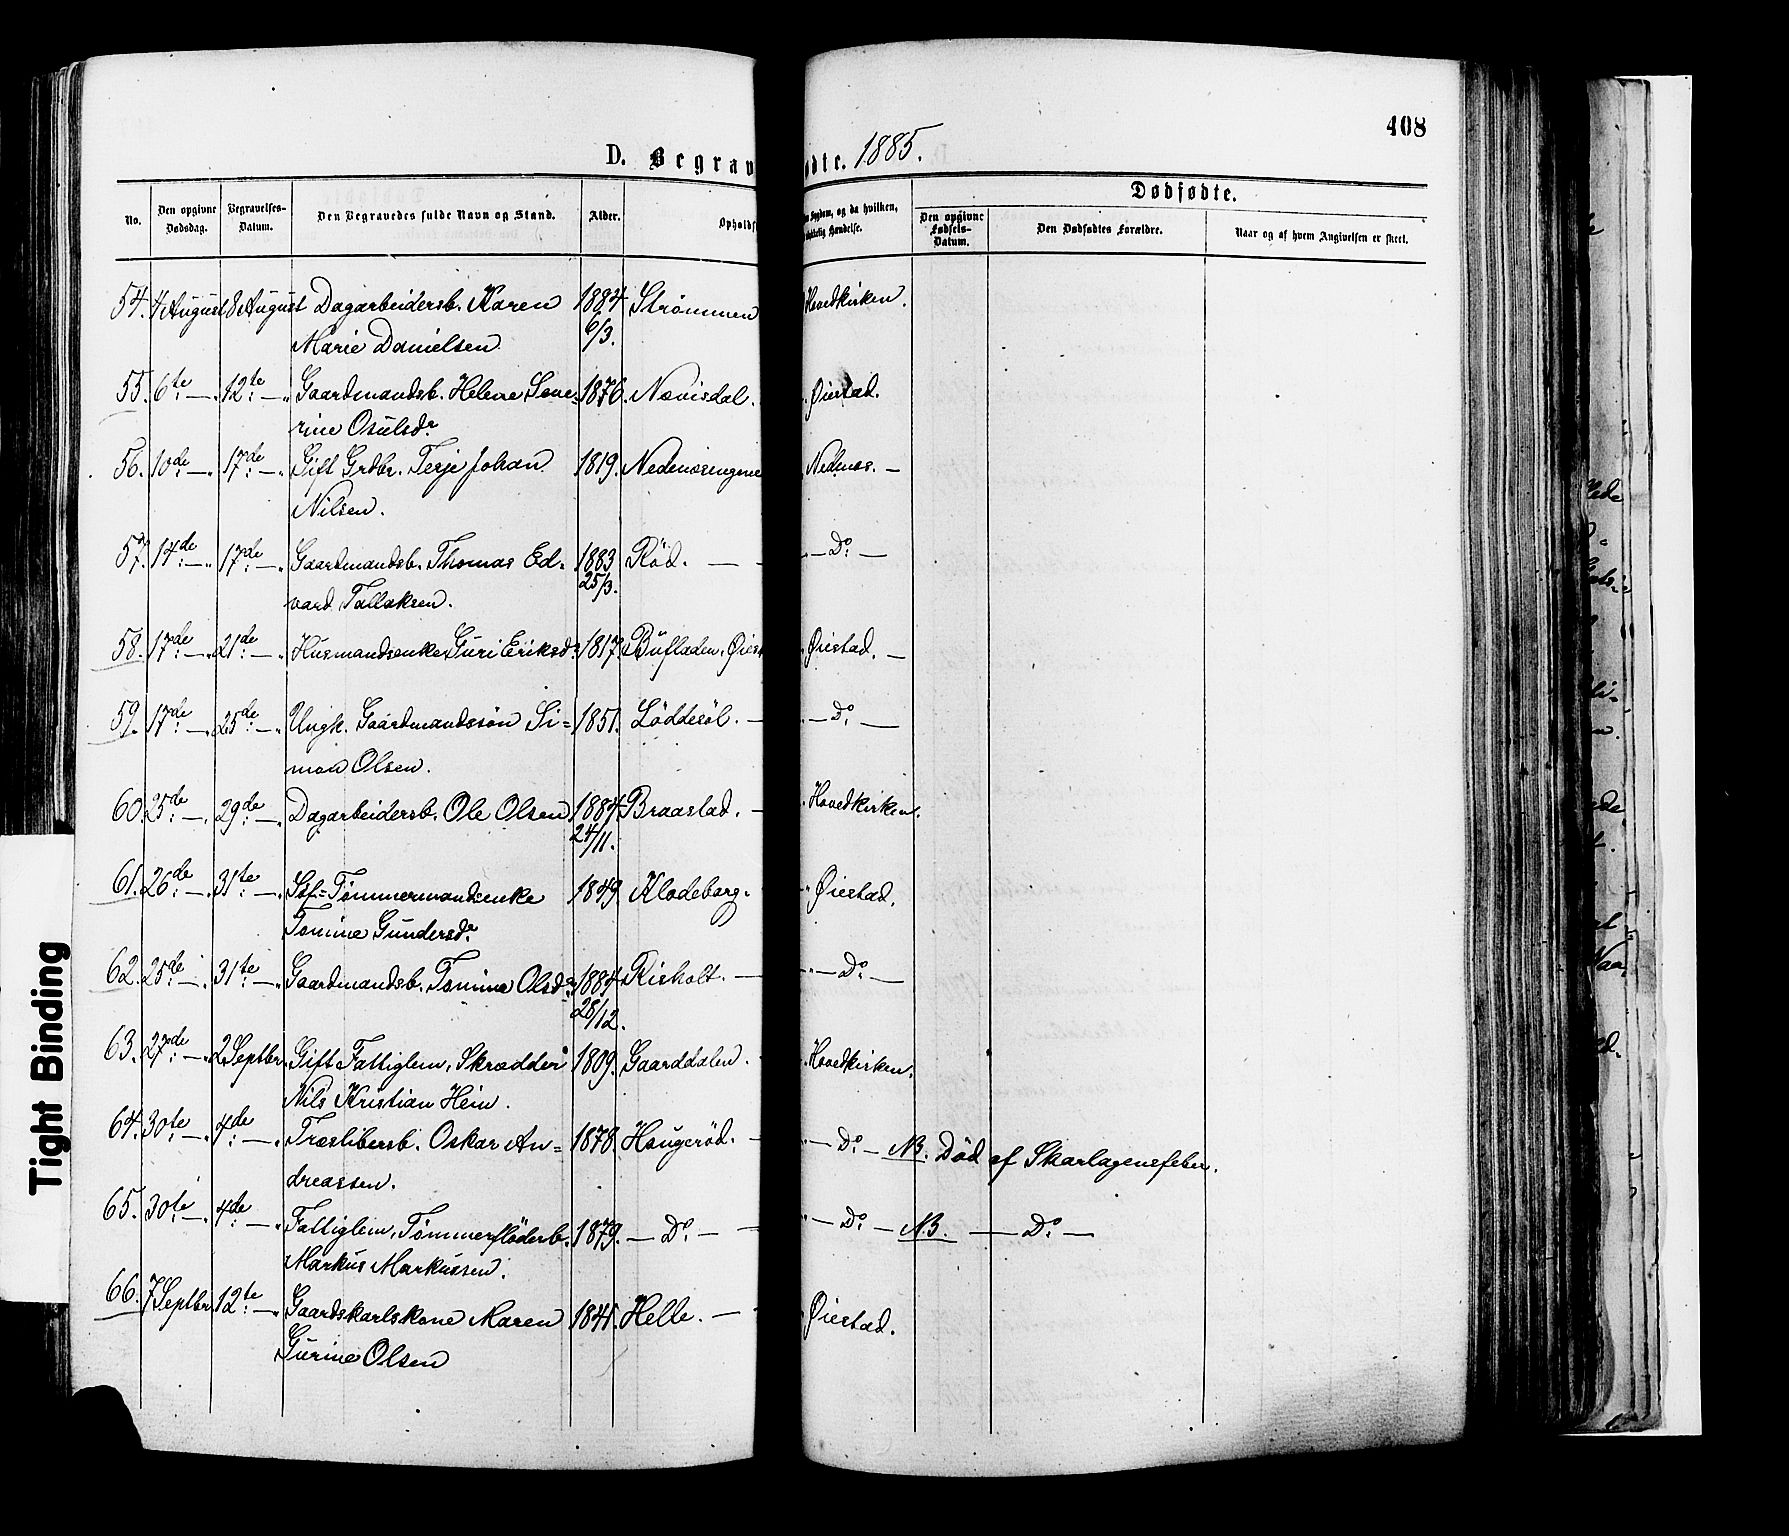 408
D. Begrav
ødte. 1885.
Dødfødte.
No.
Den opgivne Dødsdag.
Begravelses-Datum.
Den Begravedes fulde Navn og Stand.
Alder.
Opholdss
Sygdom, og da hvilken,
ykkelig Hændelse.
Den opgivne Fødsels-Datum.
Den Dødfødtes Forældre.
Naar og af hvem Angivelsen er skeet.
54. 4 August 8 August Dagarbeidersb. Karen 1884 Strømmen Hovedkirken.
Marie Danielsen 6/3.
55. 6te — 12te — Gaardmandsb. Helene Seve= 1876. Nævisdal. Øiestad.
rine Osulsdr
56. 10de — 17de — Gift Grdbr. Terje Johan 1819. Nedenæsengene Nedenæs. —
Nilsen.
57. 14de — 17de — Gaardmandsb. Thomas Ed- 1883 Röd. — — Do: —
vard Tallaksen. 25/3.
58. 17de — 21de — Husmandsenke Guri Eriksdr 1817. Bufladen, Øiest Øiestad. —
59. 17de — 25de — Ungk. Gaardmandssön Si= 1851. Löddesöl. — — Do: —
mon Olsen.
60. 25de — 29de — Dagarbeidersb. Ole Olsen 1884 Braastad. — Hovedkirken.
24/11.
61. 26de — 31te — Tømmermandsenke 1849 Klodeborg. Øiestad.
Tomine Gundersdr
62. 25de — 31te — Gaardmandsb. Tomine Olsdr 1884 Risholt. — — Do: —
28/12.
63. 27de — 2 Septbr. Gift Fattiglem, Skrædder 1809. Gaarddalen. Hovedkirken.
Nils Kristian Hein.
64. 30te — 4de — Træslibersb. Oskar An= 1878. Haugeröd. — — Do: — NB. Död af Skarlagensfeber.
dreassen.
65. 30te — 4de — Fattiglem, Tömmerflöderb. 1879. — Do — — — Do: — NB. — Do: —
Markus Markussen.
66. 7 Septbr. 12te — Gaardskarlskone Maren 1841. Helle. — Øiestad.
Gurine Olsen
Tight Binding